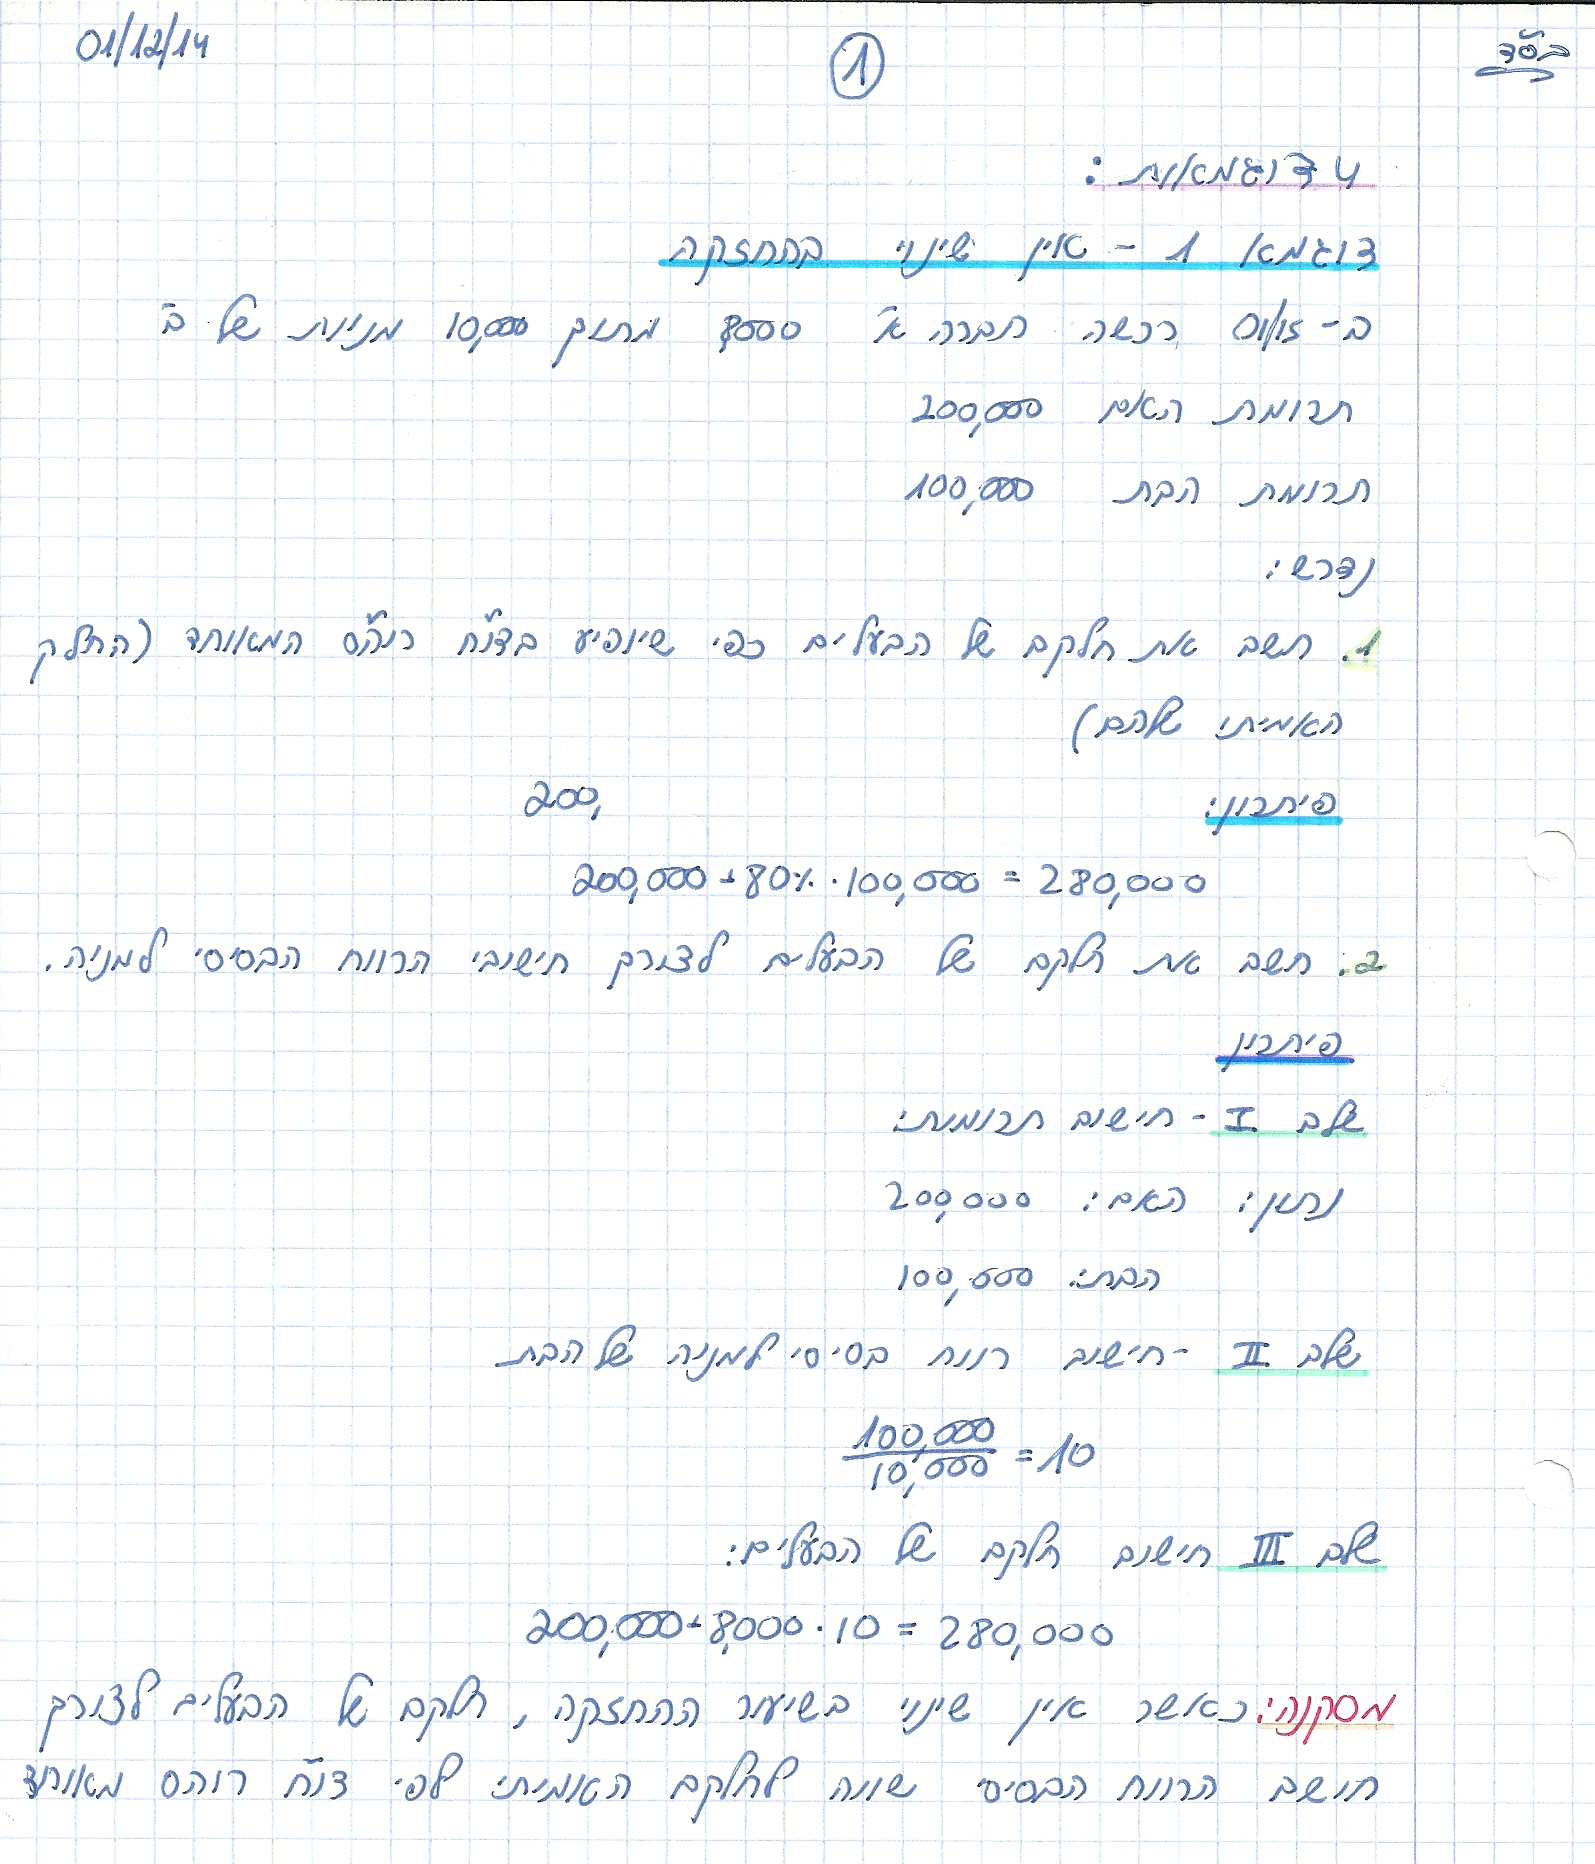 בס"ד
1
01/12/14
4 דוגמאות:
דוגמא 1 - אין שינוי בהחזקה
ב- 01/15 רכשה חברה א' 8000 מתוך 10,000 מניות של ב'
תרומת האם 200,000
תרומת הבת 100,000
נדרש:
1. חשב את חלקם של הבעלים כפי שיופיע בדו"ח רוה"ס המאוחד (החלק
האמיתי שלהם)
פיתרון: 200,
200,000+80%·100,000=280,000
2. חשב את חלקם של הבעלים לצורך חישובי הרווח הבסיסי למניה.
פיתרון
שלב I - חישוב תרומות:
נתון: האם: 200,000
הבת: 100,000
שלב II - חישוב רווח בסיסי למניה של הבת
100,000/10,000=10
שלב III חישוב חלקם של הבעלים:
200,000+8,000·10=280,000
מסקנה: כאשר אין שינוי בשיעור ההחזקה, חלקם של הבעלים לצורך
חושב הרווח הבסיסי שווה לחלקם האמיתי לפי דו"ח רוהס מאוחד